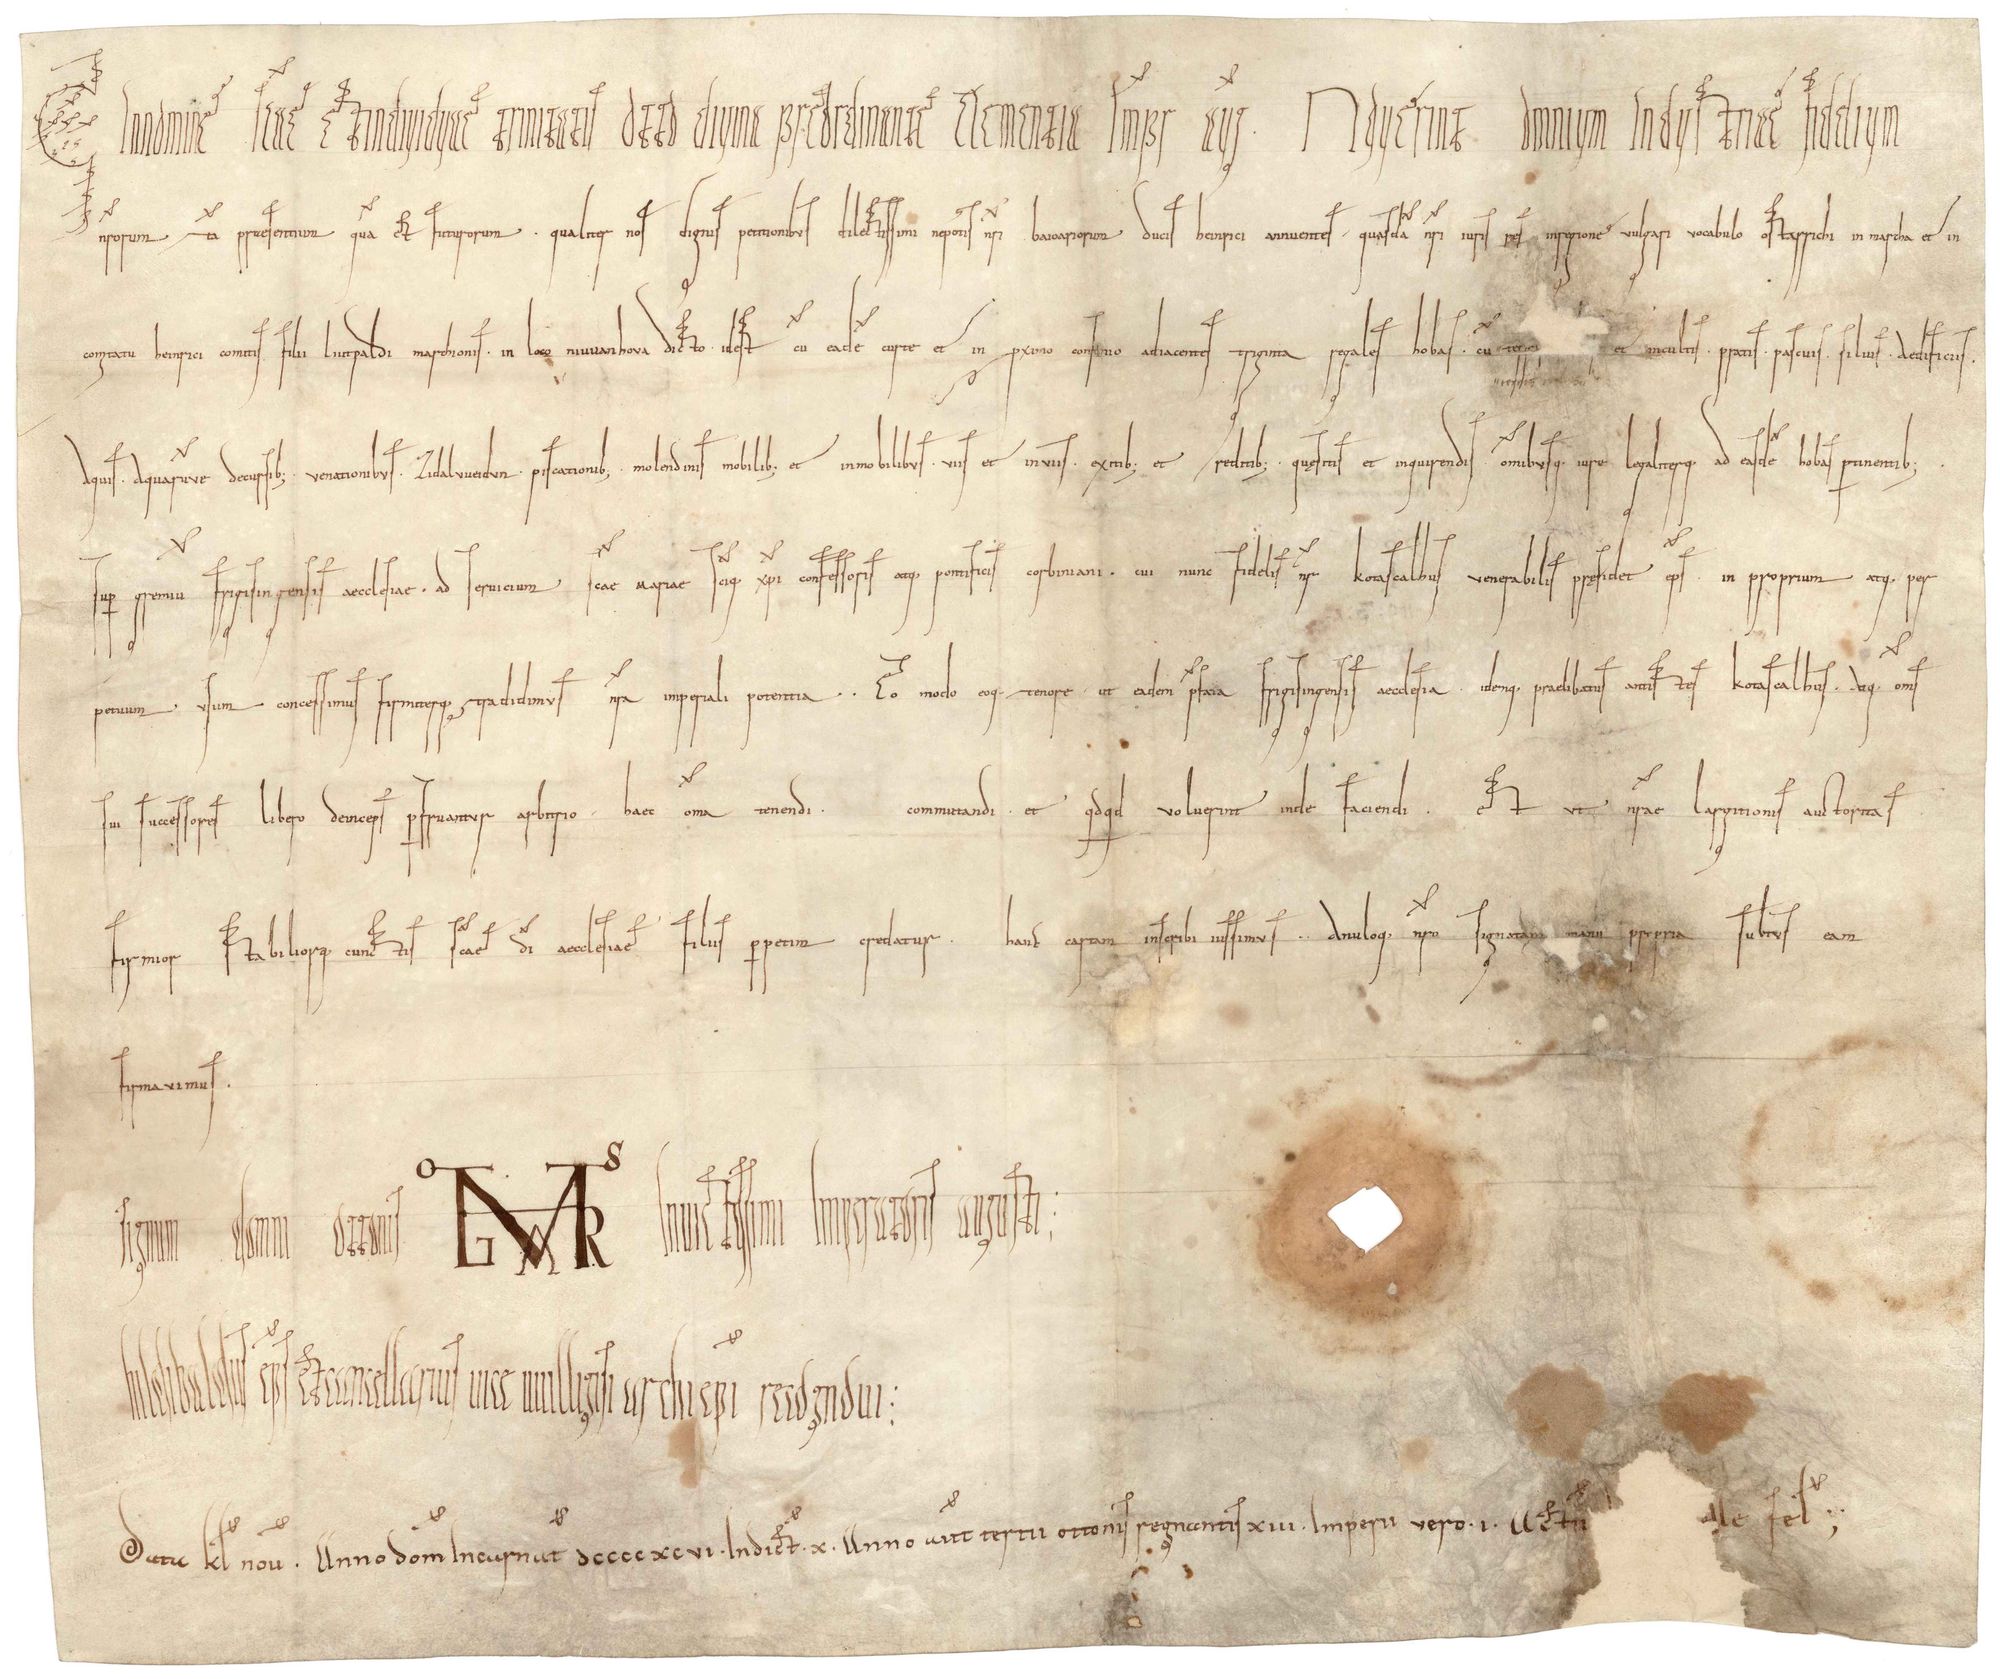 In nomine scae et individuae trinitatis Otto divina preordinante clementia imps aug. Noverint omnium industriae fidelium
nrorum tā praesentium quā et futurorum . qualiter nos dignis petitionibus dilectissimi nepotis nri baioariorum ducis heinrici annuentes . quasdā nri iuris res in regione vulgari vocabulo ostarrichi in marcha et in
comitatu heinrici comitis filii liutpaldi marchionis . in loco niuuanhova dicto . id est cū eadē curte et in pximo confinio adiacentes triginta regales hobas . cū terris et incultis . pratis . pascuis . silvis . aedificiis .
aquis . aquarūve decursib; . venationibus . zidalvveidun . piscationib; . molendinis mobilib; et inmobilibus . viis et inviis . exitib; et reditib; . quesitis et inquirendis . omibusq; iure legaliterq; ad easdē hobas ptinentib; .
sup gremiū frigisingensis aecclesiae . ad servicium scae mariae sciq; xpi confessoris atq; pontificis corbiniani . cui nunc fidelis nr kotascalhus venerabilis presidet eps . in proprium atq; per
petuum . usum concessimus firmiterq; tradidimus nra imperiali potentia . . Eo modo eoq; tenore . ut eadem pfata frigisingensis aecclesia . idemq; praelibatus antistes kotascalhus . atq; oms
sui successores libero deinceps pfruantur arbitrio . haec oma tenendi . commutandi . et qdqd voluerint inde faciendi . Et ut nrae largitionis auctoritas
firmior stabiliorq; cunctis scae di aecclesiae filiis ppetim credatur . hanc cartam inscribi iussimus . . Anuloq; nro signatam manu propria subtus eam
firmavimus .
Signum domni ottonis invictissimi imperatoris augusti :
OS GMAR
hildibaldus eps et cancellarius vice uuilligisi archiepi recognovi :
Data kl nov . Anno dom incarnat dcccc xcvi . Indict . x . Anno aut tertii ottonis regnantis xiii . Imperii vero . i . Actū ale fel ;